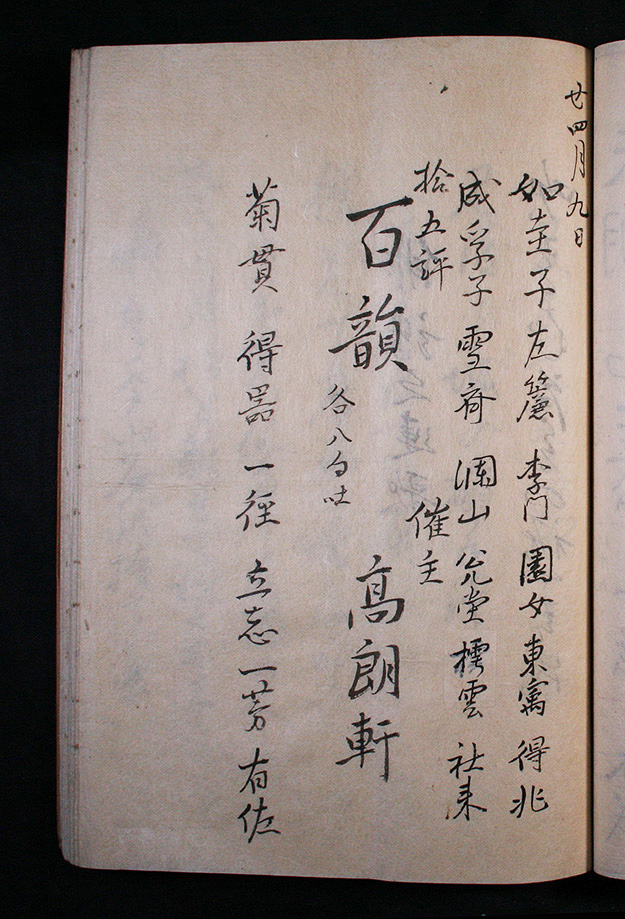 廿四月九日
如圭子 左簾 李門 園女 東寓 得兆
成孚子 雪斎 瀾山 公堂 樗雲 社来
拾五評 催主
百韻 高朗軒
各八句吐
菊貫 得器 一徑 立志 一芳 有佐